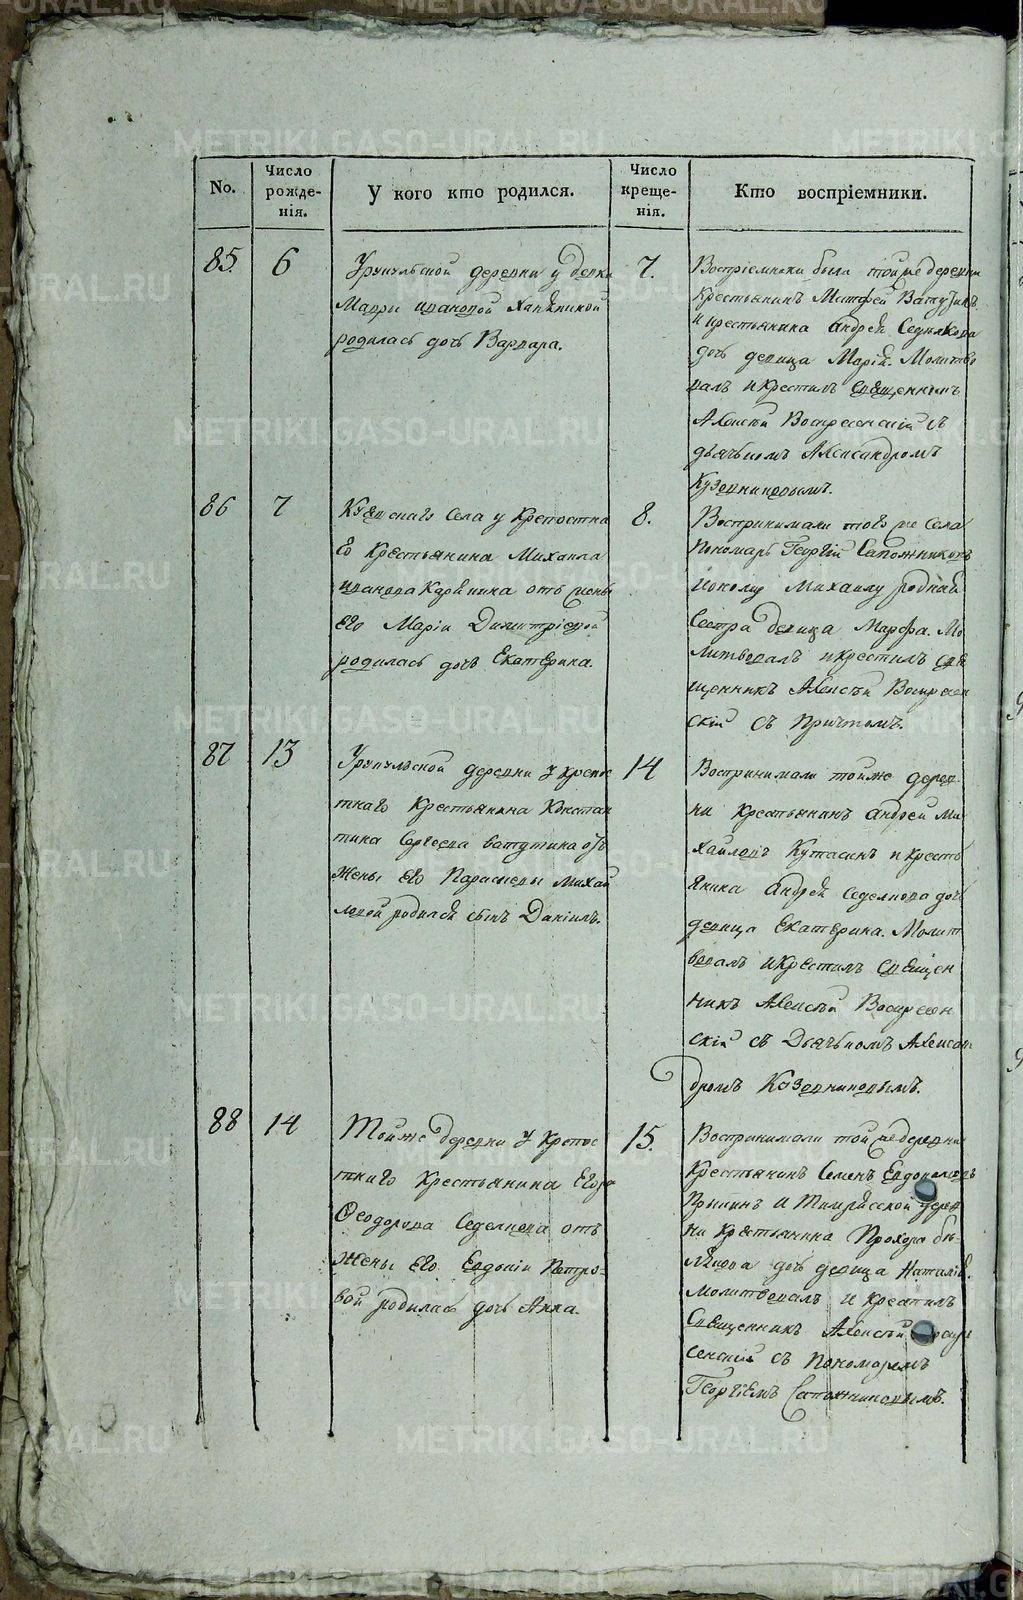 No.
Число рожде-нія.
У кого кто родился.
Число креще-нія.
Кто воспріемники.
85.
6
деревни у девки
Мавры Ивановой
родилась дочь Варвара.
7.
Воспріемники были тойже деревни
крестьянинъ Матфей Ватутинъ
и крестьянина Андрея Седелкова
дочь девица Марія. Молитво
валъ и крестилъ священникъ
Алексѣй Воскресенскій съ
дьячкомъ Александромъ
Кузовниковымъ.
86
7
села у крепостна
го крестьянина Михаила
Иванова отъ жены
его Маріи Димитріевой
родилась дочь Екатерина.
8.
Воспринимали тогоже села
пономарь Георгій Сапожниковъ
Михаилу родная
сестра девица Марфа. Мо
литвовалъ и крестилъ свя
щенникъ Алексѣй Воскресен
скій съ причтомъ.
87
13
деревни у крепос
тнаго крестьянина Констан
тина Сергеева Ватутина отъ
жены его Параскевы Михай
ловой родился сынъ Даніилъ.
14
Воспринимали тойже дерев-
ни крестьянинъ Андрей Ми
хайловъ Кутасинъ и кресть
янина Андрея Седелкова дочь
девица Екатерина. Молит
вовалъ и крестилъ священ
никъ Алексѣй Воскресен
скій съ дьячкомъ Алексан
дромъ Кузовниковымъ.
88
14
Тойже деревни у крепос
тнаго крестьянина Егора
Ѳеодорова Седелкова отъ
жены его Евдокіи Петро-
вой родилась дочь Анна.
15.
Воспринимали тойже деревни
крестьянинъ Семенъ Евдокимовъ
и дерев
ни крестьянина Прохора
дочь девица Наталія.
Молитвовалъ и крестилъ
священникъ Алексѣй Воскре
сенскій съ пономаремъ
Георгіемъ Сапожниковымъ.
METRIKI.GASO-URAL.RU